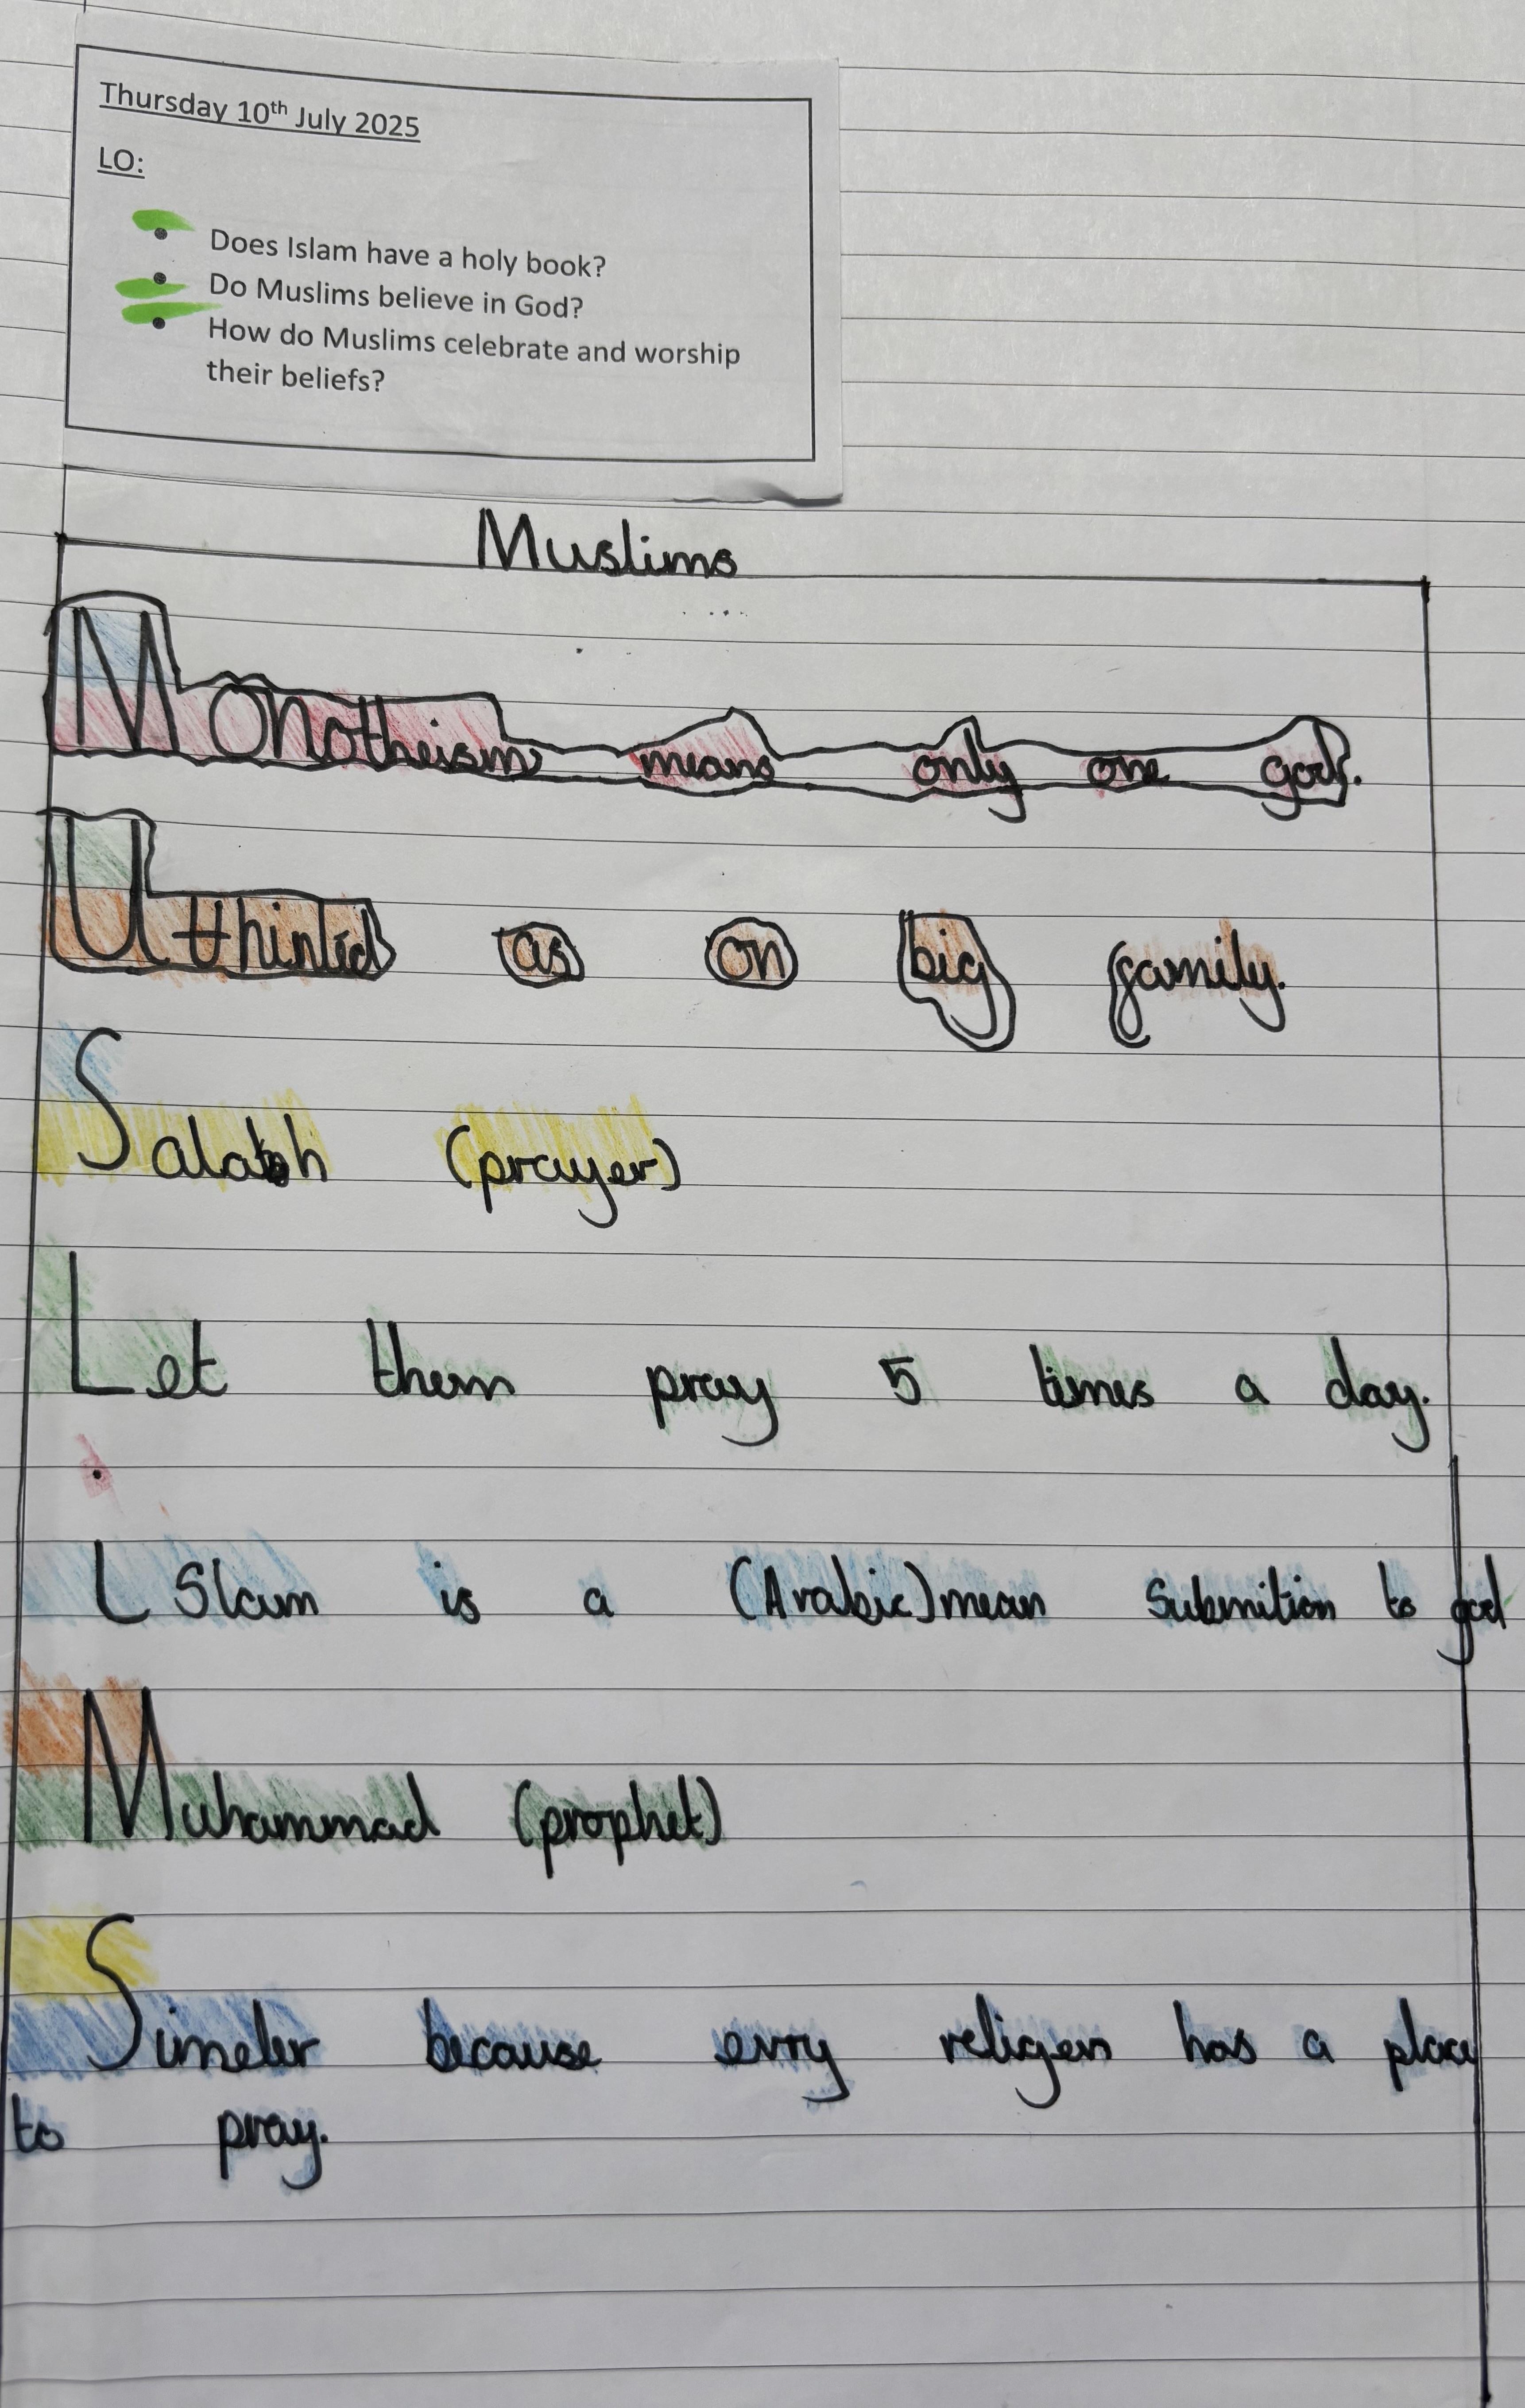 Thursday 10th July 2025
LO:
• Does Islam have a holy book?
• Do Muslims believe in God?
• How do Muslims celebrate and worship
their beliefs?
Muslims
Monotheism means only one god.
as on big family.
(prayer)
Let them pray 5 times a day.
ISlam is a (Arabic) mean Submition to god
Muhammad (prophet)
Simeler because evry religen has a place
to pray.